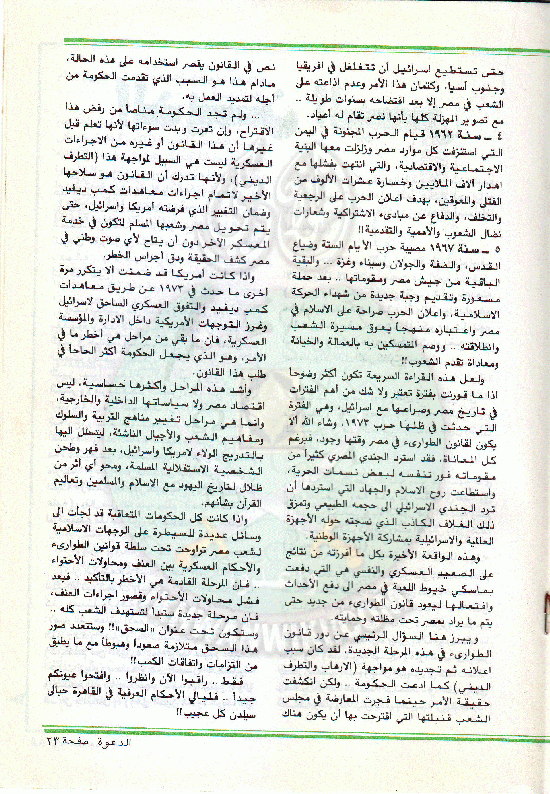 حتى تستطيع اسرائيل أن تتغلغل في افريقيا
وجنوب آسيا، وكتمان هذا الأمر وعدم اذاعته على
الشعب في مصر إلا بعد افتضاحه بسنوات طويلة ..
مع تصوير المهزلة كلها بأنها نصر تقام له أعياد.
٤ ـ سنة ١٩٦٢ قيام الحرب المجنونة في اليمن
التي استنزفت كل موارد مصر وزلزلت معها البنية
الاجتماعية والاقتصادية، والتي انتهت بفشلها مع
اهدار آلاف الملايين وخسارة عشرات الألوف من
القتلى والمعوقين، بهدف اعلان الحرب على الرجعية
والتخلف، والدفاع عن مبادىء الاشتراكية وشعارات
نضال الشعوب والأممية والتقدمية!!
٥ ـ سنة ١٩٦٧ مصيبة حرب الأيام الستة وضياع
القدس، والضفة والجولان وسيناء وغزة ... والبقية
الباقية من جيش مصر ومقوماتها .. بعد حملة
مسعورة وتقديم وجبة جديدة من شهداء الحركة
الاسلامية، واعلان الحرب صراحة على الاسلام في
مصر واعتباره منهجاً يعوق مسيرة الشعب
وانطلاقته .. ووصم المتمسكين به بالعمالة والخيانة
ومعاداة تقدم الشعوب!!
ولعل هذه القراءة السريعة تكون أكثر وضوحاً
اذا ما قورنت بفترة تعتبر ولا شك من أهم الفترات
في تاريخ مصر وصراعها مع اسرائيل، وهي الفترة
التي حدثت في ظلها حرب ١٩٧٣، وشاء الله ألا
يكون لقانون الطوارىء في مصر وقتها وجود، فبرغم
كل المعاناة، فقد استرد الجندي المصري كثيراً من
مقوماته فور تنفسه لبعض نسمات الحرية،
واستطاعت روح الاسلام والجهاد التي استردها أن
ترد الجندي الاسرائيلي الى حجمه الطبيعي وتمزق
ذلك الغلاف الكاذب الذي نسجته حوله الأجهزة
العالمية والاسرائيلية بمشاركة الأجهزة الوطنية.
وهذه الواقعة الأخيرة بكل ما أفرزته من نتائج
على الصعيد العسكري والنفسي هي التي دفعت
بماسكي خيوط اللعبة في مصر الى دفع الأحداث
وافتعالها ليعود قانون الطوارىء من جديد حتى
يتم ما يراد بمصر تحت مظلته وحمايته.
ويبرز هنا السؤال الرئيسي عن دور قانون
الطوارىء في هذه المرحلة الجديدة، لقد كان سبب
اعلانه ثم تجديده هو مواجهة (الارهاب والتطرف
الديني) كما ادعت الحكومة .. ولكن انكشفت
حقيقة الأمر حينما فجرت المعارضة في مجلس
الشعب قنبلتها التي اقترحت بها أن يكون هناك
نص في القانون يقصر استخدامه على هذه الحالة،
مادام هذا هو السبب الذي تقدمت الحكومة من
أجله لتمديد العمل به.
... ولم تجد الحكومة مناصاً من رفض هذا
الاقتراح، وإن تعرت وبدت سوءاتها لأنها تعلم قبل
غيرها أن هذا القانون أو غيره من الاجراءات
العسكرية ليست هي السبيل لمواجهة هذا (التطرف
الديني)، ولأنها تدرك أن القانون هو سلاحها
الأخير لاتمام اجراءات معاهدات كمب ديفيد
وضمان التفيير الذي فرضته أمريكا واسرائيل، حتى
يتم تحويل مصر وشعبها المسلم لتكون في خدمة
المعسكر الآخر دون أن يتاح لأي صوت وطني في
مصر كشف الحقيقة ودق أجراس الخطر.
واذا كانت أمريكا قد ضمنت ألا يتكرر مرة
أخرى ما حدث في ١٩٧٣ عن طريق معاهدات
كمب ديفيد والتفوق العسكري الساحق لاسرائيل
وغرز التوجهات الأمريكية داخل الادارة والمؤسسة
العسكرية، فان ما بقي من مراحل هي أخطر ما في
الأمر، وهو الذي يجعل الحكومة أكثر الحاحاً في
طلب هذا القانون.
وأشد هذه المراحل وأكثرها حساسية، ليس
اقتصاد مصر ولا سياساتها الداخلية والخارجية،
وانما هي مراحل تغيير مناهج التربية والسلوك
ومفاهيم الشعب والأجيال الناشئة، ليتسلل اليها
بالتدريج الولاء لأمريكا واسرائيل، بعد قهر وطحن
الشخصية الاستقلالية المسلمة، ومحو أي أثر من
ظلال لتاريخ اليهود مع الاسلام والمسلمين وتعاليم
القرآن بشأنهم.
واذا كانت كل الحكومات المتعاقبة قد لجأت الى
وسائل عديدة للسيطرة على الوجهات الاسلامية
لشعب مصر تراوحت تحت سلطة قوانين الطوارىء
والأحكام العسكرية بين العنف ومحاولات الاحتواء
.. فان المرحلة القادمة هي الأخطر بالتأكيد .. فبعد
فشل محاولات الاحتواء وقصور اجراءات العنف،
فان مرحلة جديدة ستبدأ لتستهدف الشعب كله ..
وستكون تحت عنوان «السحق»!! وستتعدد صور
هذا السحق متلازمة صعوداً وهبوطاً مع ما يطبق
من التزامات واتفاقات الكمب!!
فقط .. راقبوا الآن وانظروا .. وافتحوا عيونكم
جيداً .. فليالي الأحكام العرفية في القاهرة حبالى
سيلدن كل عجيب!!
الدعوة ـ صفحة ٢٣